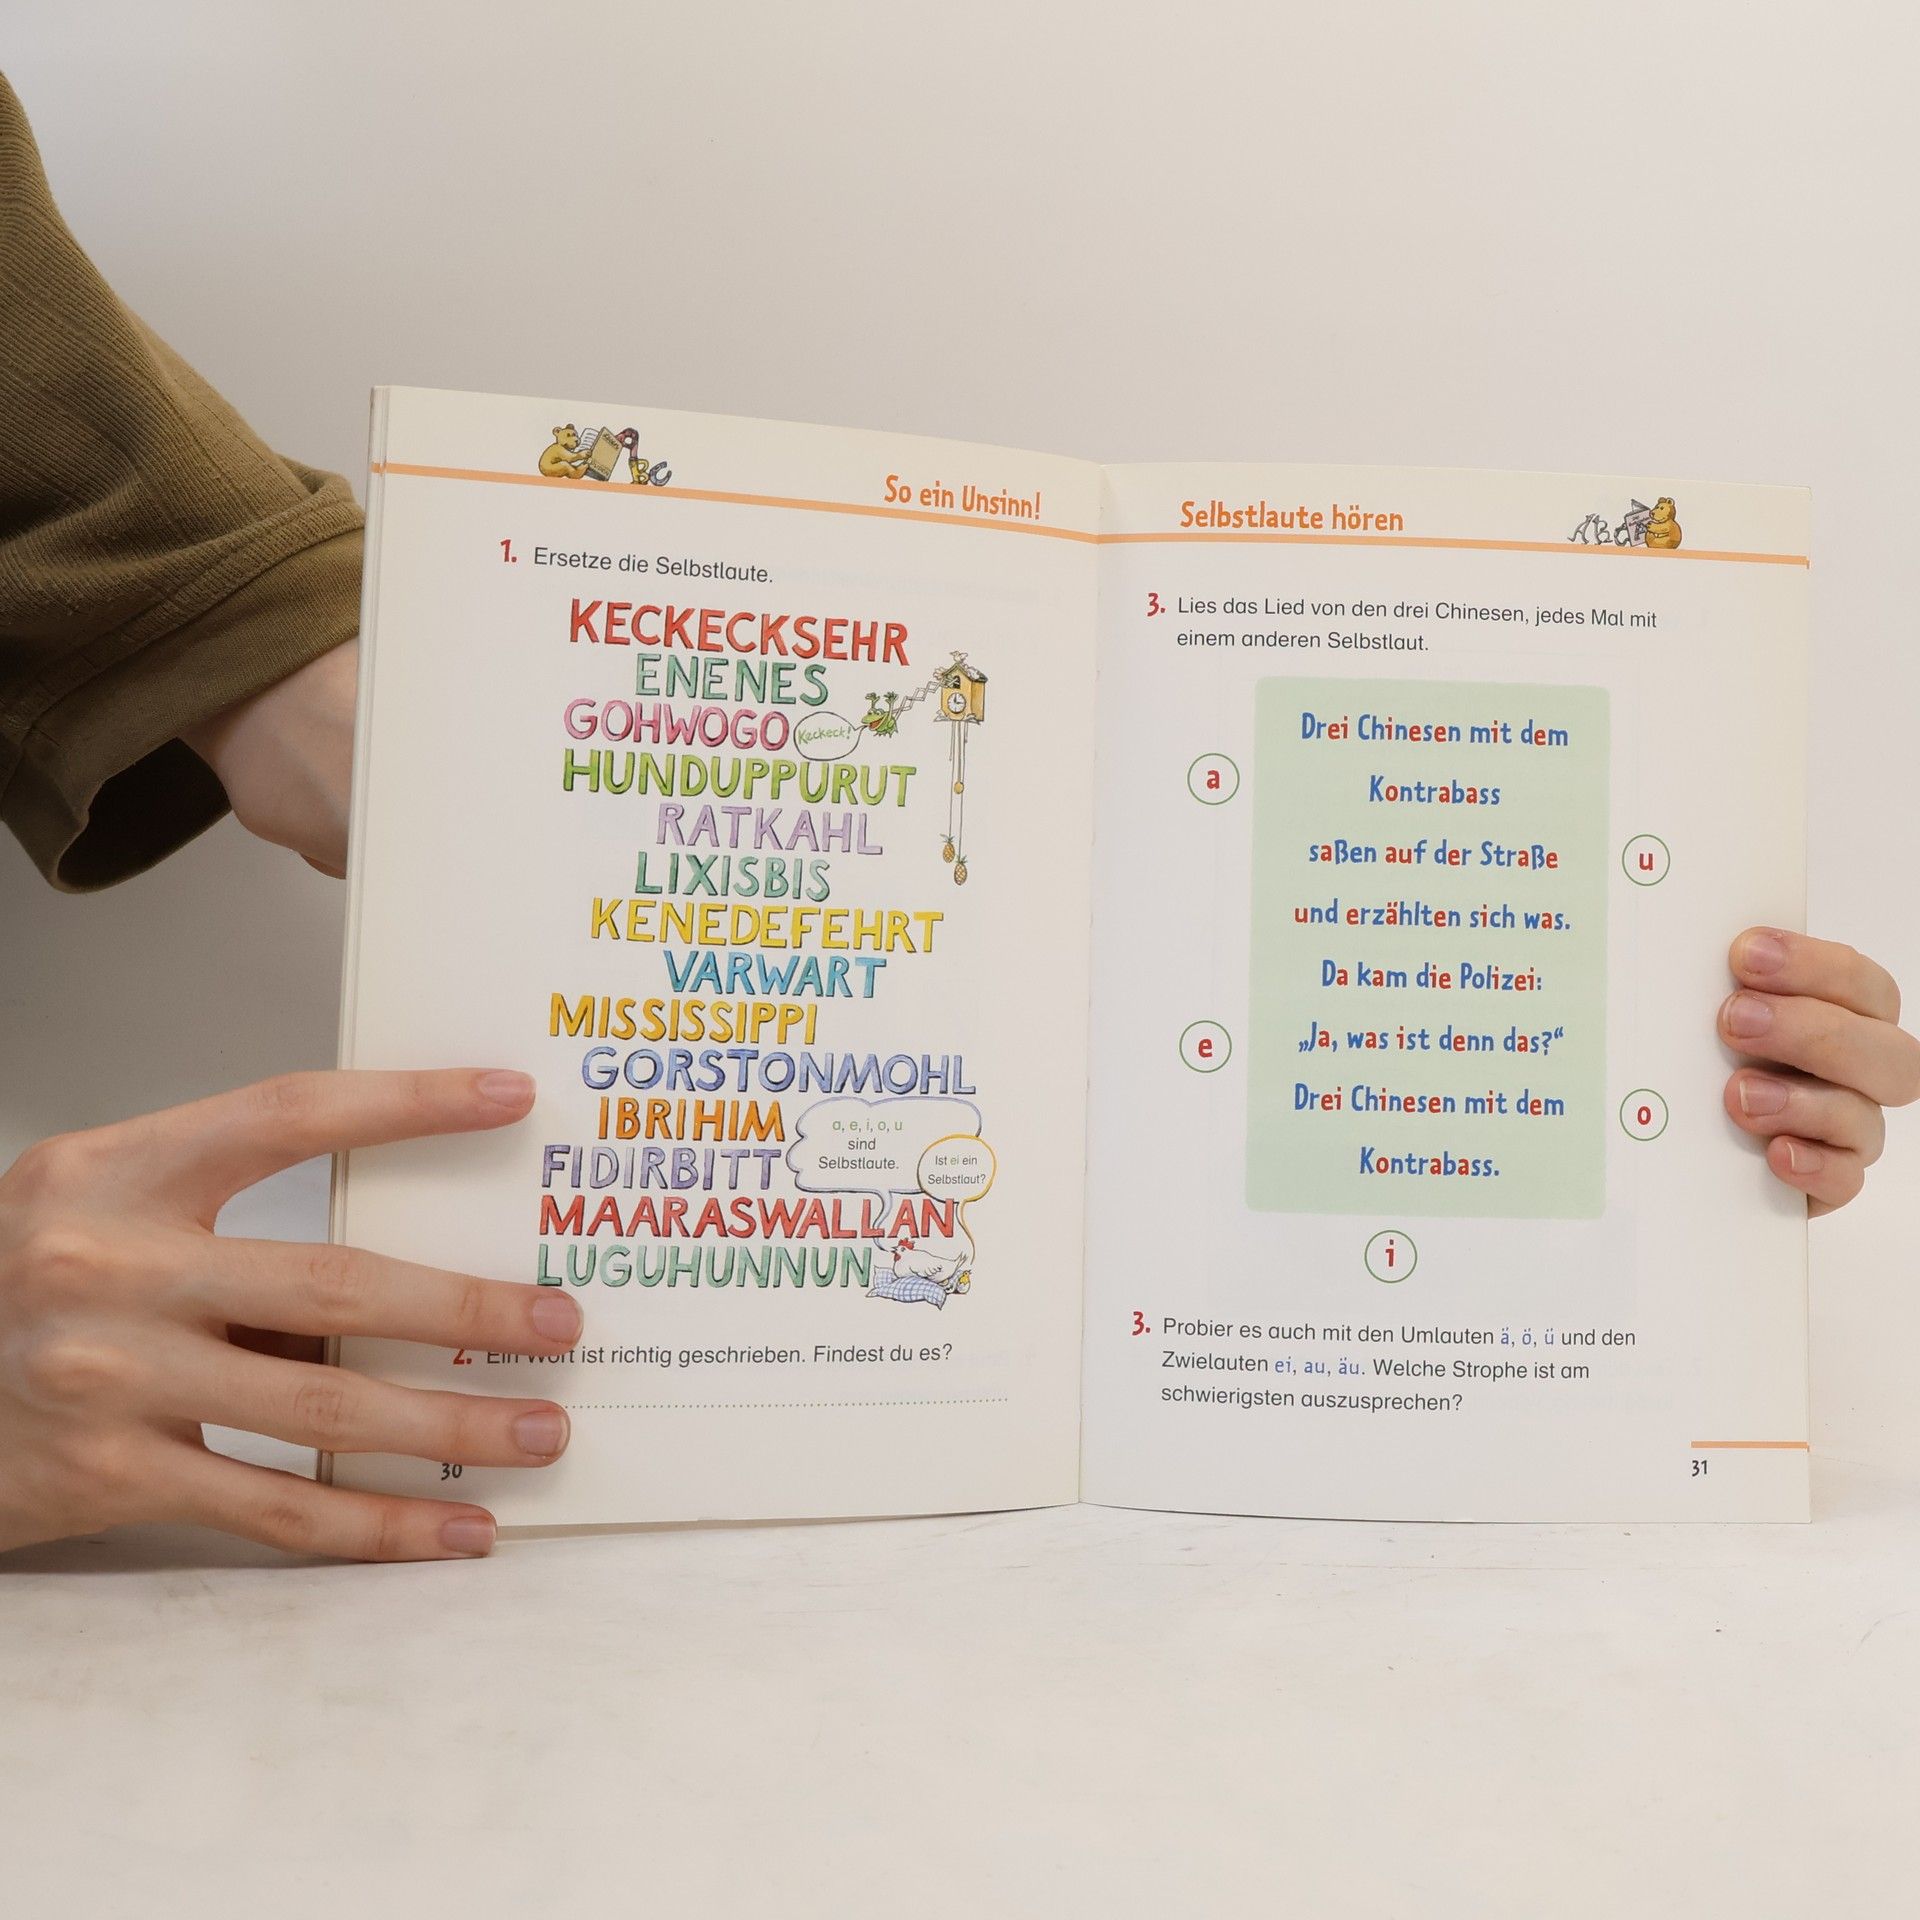 So ein Unsinn!
1. Ersetze die Selbstlaute.
KECKECKSEHR
ENENES
GOHWOGO
Keckeck!
HUNDUPPURUT
RATKAHL
LIXISBIS
KENEDEFEHRT
VARWART
MISSISSIPPI
GORSTONMOHL
IBRIHIM
FIDIRBITT
a, e, i, o, u
sind
Selbstlaute.
Ist ei ein
Selbstlaut?
MAARASWALLAN
LUGUHUNNUN
2. Ein Wort ist richtig geschrieben. Findest du es?
30
Selbstlaute hören
3. Lies das Lied von den drei Chinesen, jedes Mal mit
einem anderen Selbstlaut.
Drei Chinesen mit dem
a
Kontrabass
saßen auf der Straße
u
und erzählten sich was.
Da kam die Polizei:
„Ja, was ist denn das?“
e
Drei Chinesen mit dem
o
Kontrabass.
i
3. Probier es auch mit den Umlauten ä, ö, ü und den
Zwielauten ei, au, äu. Welche Strophe ist am
schwierigsten auszusprechen?
31